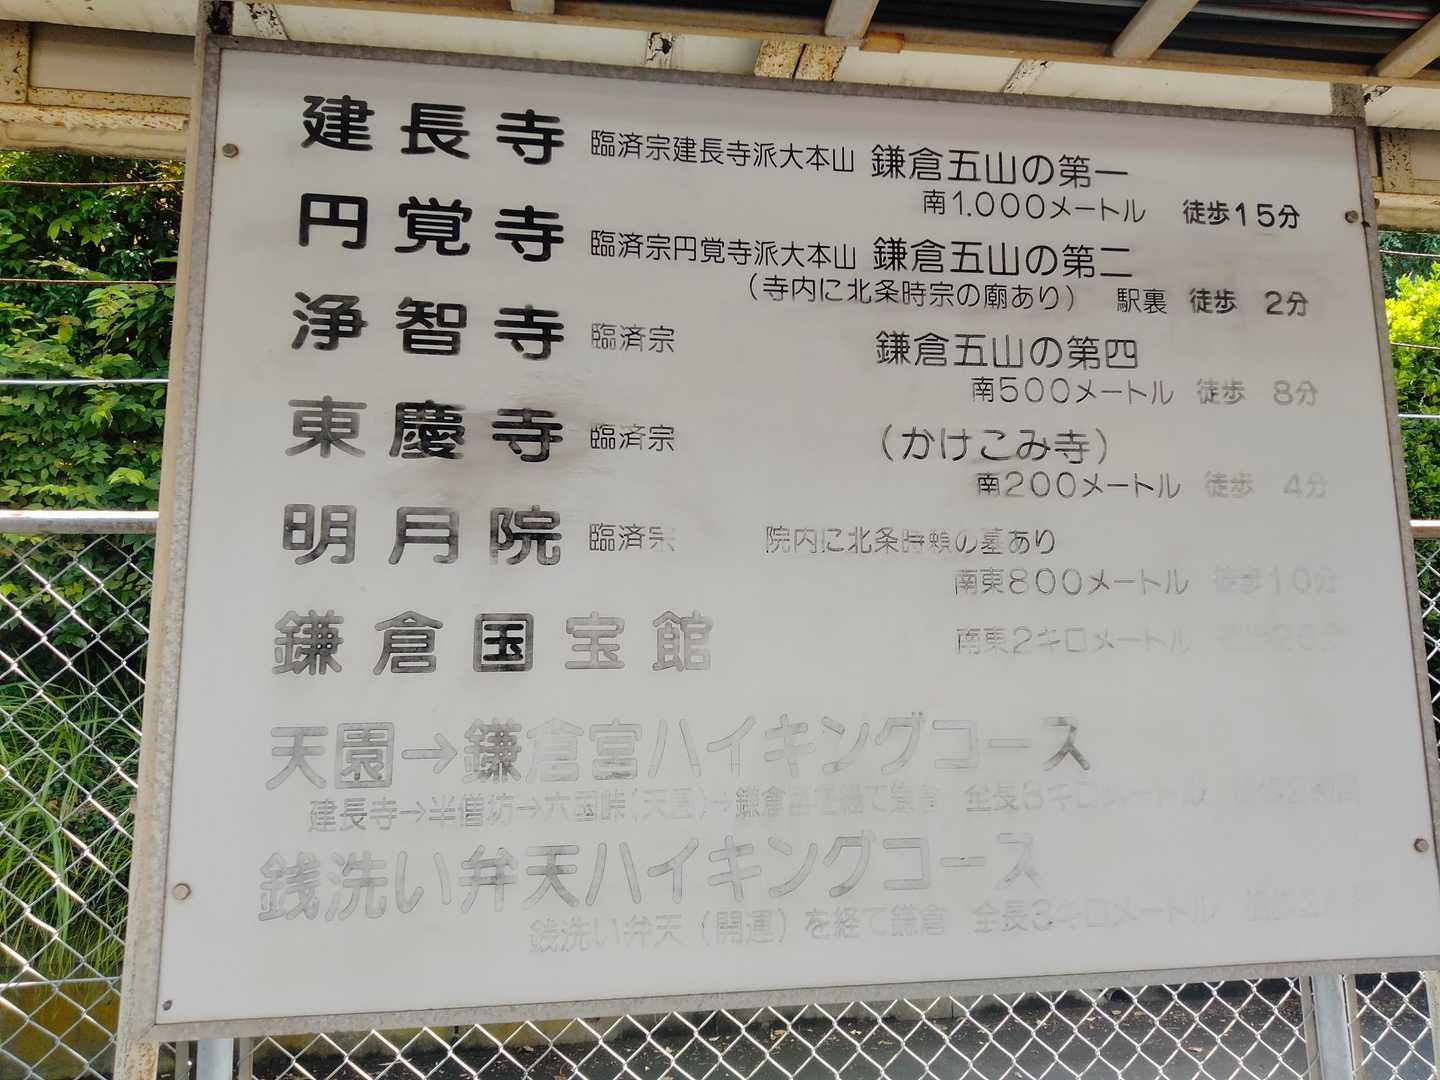 建長寺 臨済宗建長寺派大本山 鎌倉五山の第一
南1.000メートル 徒歩15分
円覚寺 臨済宗円覚寺派大本山 鎌倉五山の第二
(寺内に北条時宗の廟あり) 駅裏 徒歩 2分
浄智寺 臨済宗 鎌倉五山の第四
南500メートル 徒歩 8分
東慶寺 臨済宗 (かけこみ寺)
南200メートル 徒歩 4分
明月院 臨済宗 院内に北条時頼の墓あり
南東800メートル 徒歩10分
鎌倉国宝館 南東2キロメートル
天園→鎌倉宮ハイキングコース
建長寺→半僧坊→六国峠(天園)→鎌倉宮を経て鎌倉 全長8キロメートル
銭洗い弁天ハイキングコース
銭洗い弁天(開運)を経て鎌倉 全長3キロメートル